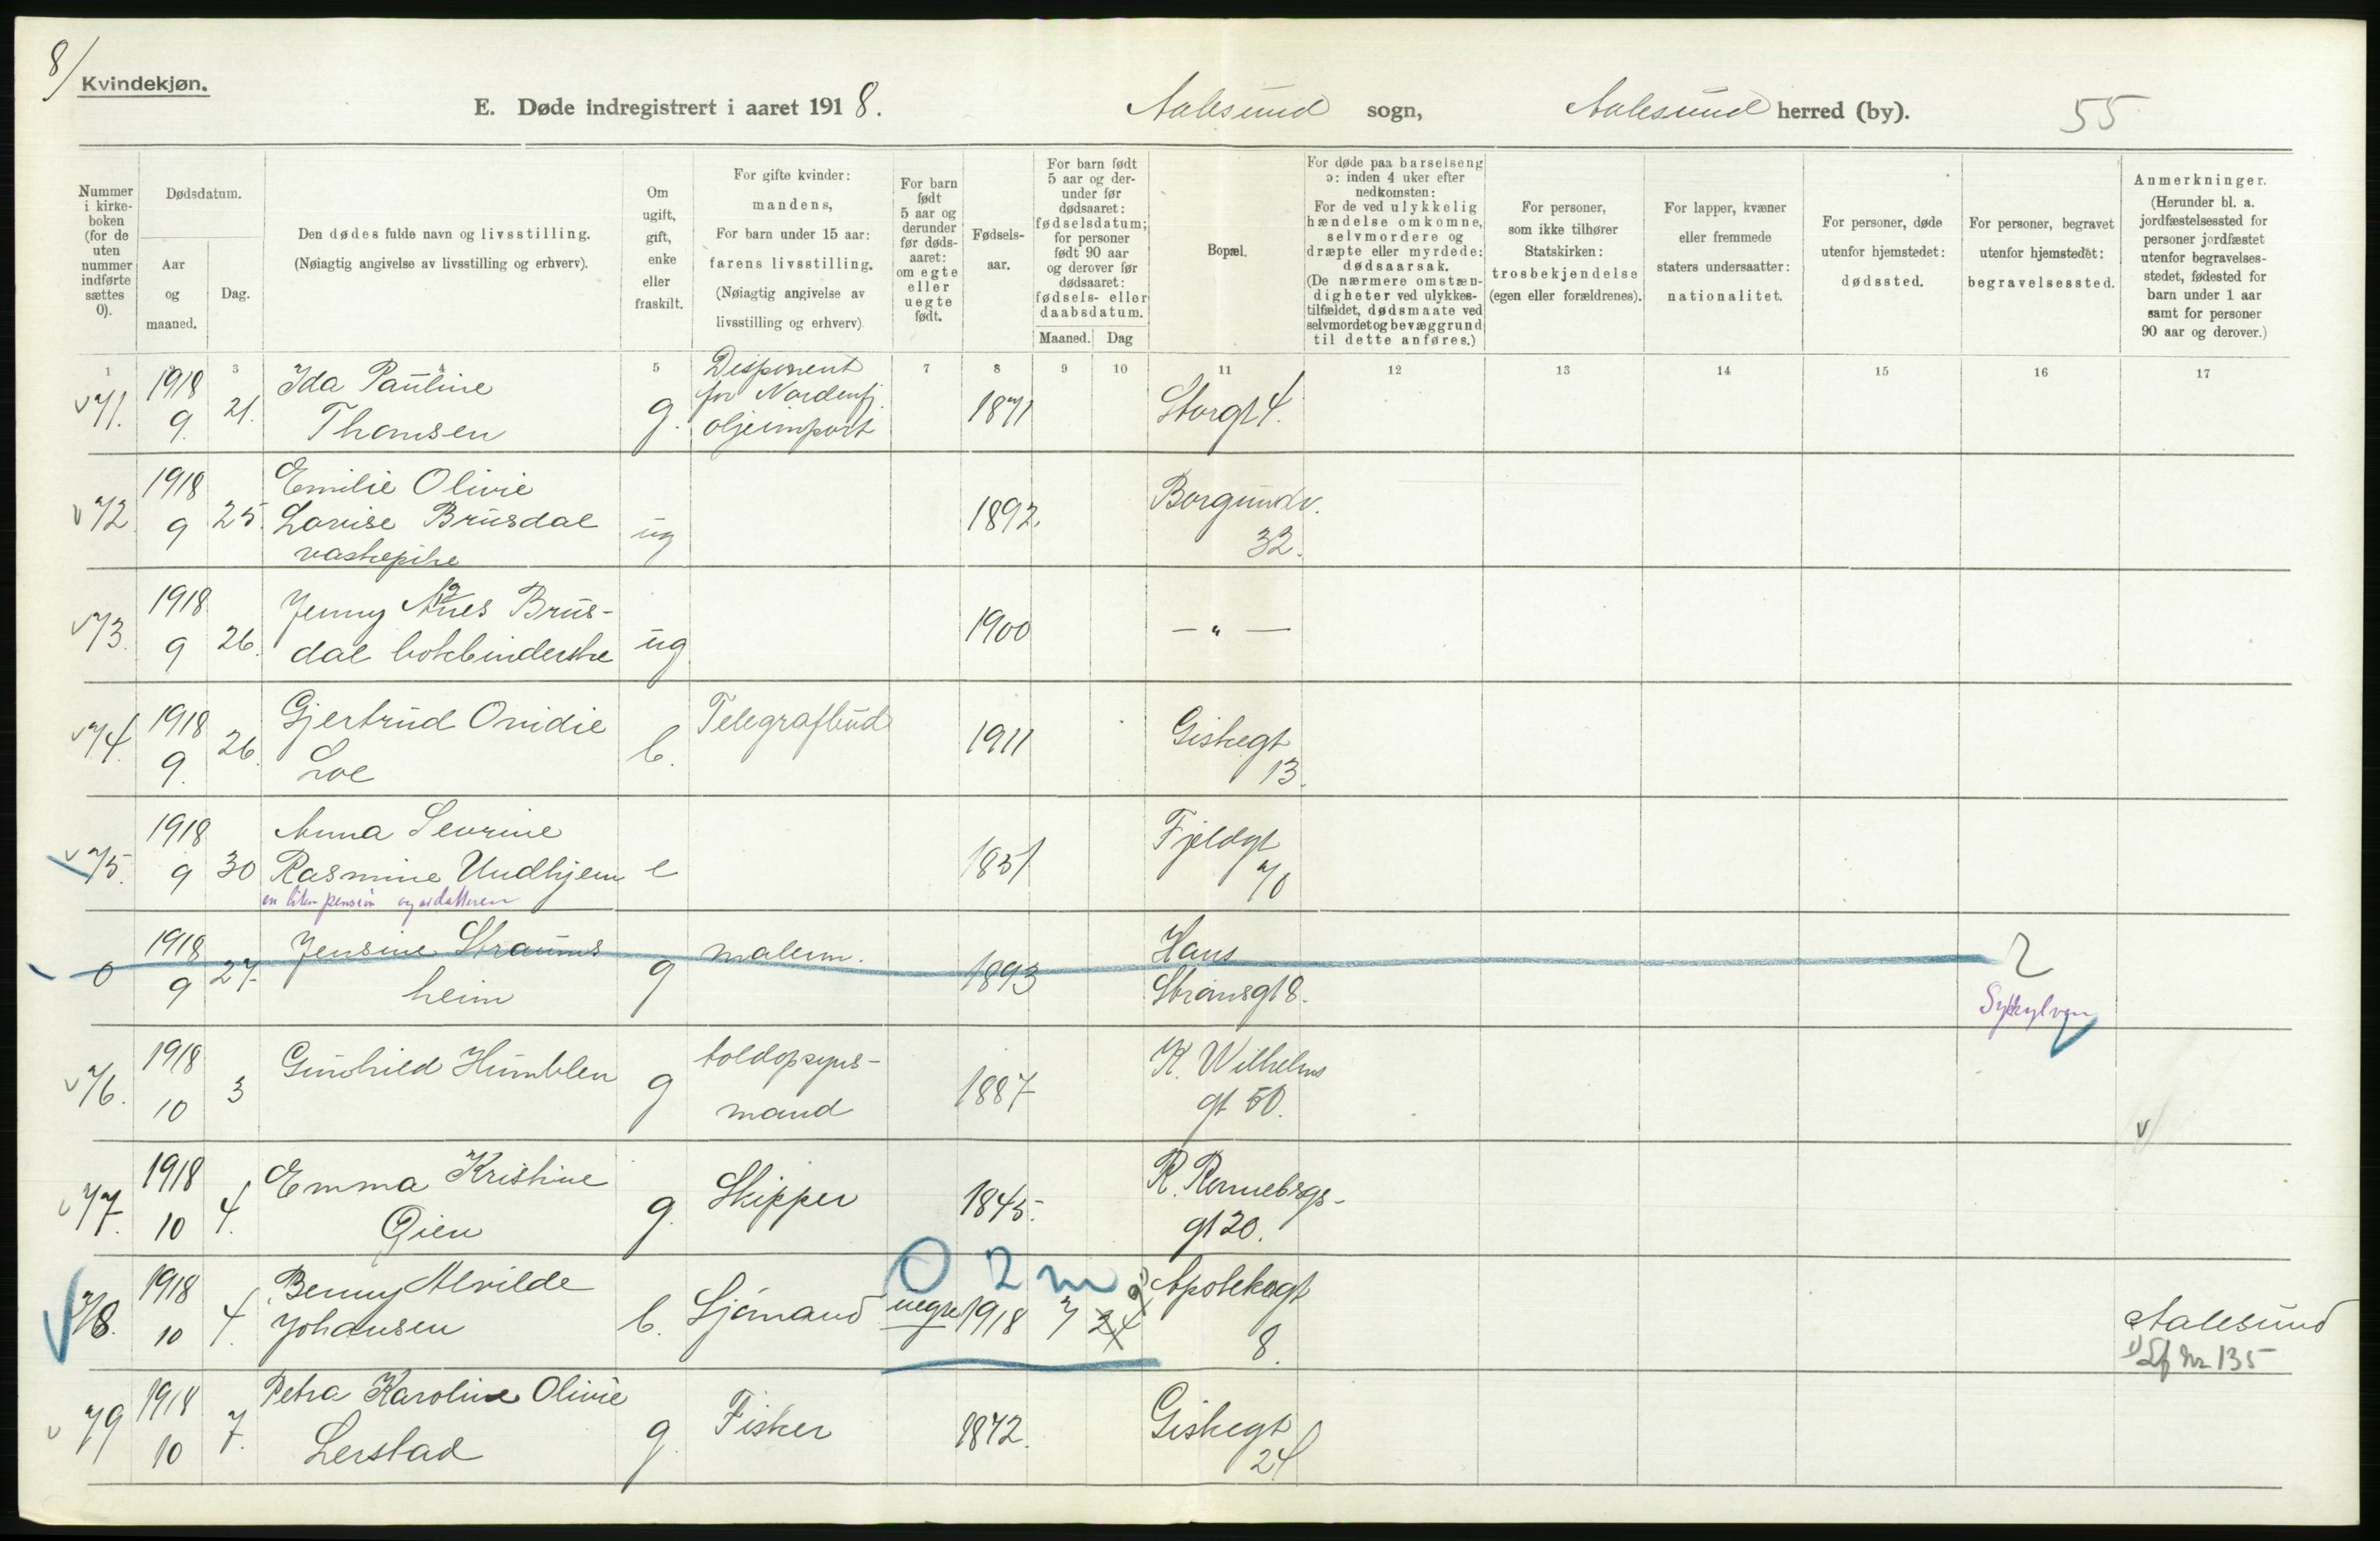 8/
Kvindekjøn.
E. Døde indregistrert i aaret 1918.
Aalesund sogn,
Aalesund herred (by).
55
Nummer
i kirke-
boken
(for de
uten
nummer
indførte
sættes
0).
Dødsdatum.
Aar
og
maaned.
Dag.
Den dødes fulde navn og livsstilling.
(Nøiagtig angivelse av livsstilling og erhverv).
Om
ugift,
gift,
enke
eller
fraskilt.
For gifte kvinder:
mandens,
For barn under 15 aar:
farens livsstilling.
(Nøiagtig angivelse av
livsstilling og erhverv)
For barn
født
5 aar og
derunder
før døds-
aaret:
om egte
eller
uegte
født.
Fødsels-
aar.
For barn født
5 aar og der-
under før
dødsaaret:
fødselsdatum;
for personer
født 90 aar
og derover før
dødsaaret:
fødsels- eller
daabsdatum.
Maaned. Dag
Bopæl.
For døde paa barselseng
ɔ: inden 4 uker efter
nedkomsten:
For de ved ulykkelig
hændelse omkomne,
selvmordere og
dræpte eller myrdede:
dødsaarsak.
(De nærmere omstæn-
digheter ved ulykkes-
tilfældet, dødsmaate ved
selvmordet og bevæggrund
til dette anføres.)
For personer,
som ikke tilhører
Statskirken:
trosbekjendelse
(egen eller forældrenes).
For lapper, kvæner
eller fremmede
staters undersaatter:
nationalitet.
For personer, døde
utenfor hjemstedet:
dødssted.
For personer, begravet
utenfor hjemstedet:
begravelsessted.
Anmerkninger.
(Herunder bl. a.
jordfæstelsessted for
personer jordfæstet
utenfor begravelses-
stedet, fødested for
barn under 1 aar
samt for personer
90 aar og derover.)
1 3 4 5 7 8 9 10 11 12 13 14 15 16 17
v 71. 1918 9. 21. Ida Pauline
Thomsen g. Disponent
for Nordenfj.
oljeimport 1871 Storgt 4.
v 72. 1918 9 25. Emilie Olivie
Lovise Brusdal
vaskepike ug 1892. Borgundv.
32.
v 73. 1918 9 26. Jenny Agnes Brus-
dal bokbinderske ug 1900 — " —
v 74. 1918 9. 26. Gjertrud Ovidie
Loe b. Telegrafbud 1911 Giskegt
13.
v 75. 1918 9 30 Anna Sevrine
Rasmine Undhjem e 1851 Fjeldgt
70
en liten pension og av datteren
0 1918 9 27. Jensine Straums
heim g malerm. 1893 Hans
Strømsgt 8. 2
Sykkylven
v 76. 1918 10 3 Gunhild Humblen g toldopsyns-
mand 1887 K. Wilhelms
gt 50.
v
v 77. 1918 10 4. Emma Kristine
Øien g. Skipper 1845. R. Rønnebergs-
gt 20.
0 2 m
78. 1918 10 4. Benny Alvilde
Johansen b. Sjømand uegte 1918 7 24 Apotekergt
8. Aalesund
1) Lf Nr 135
v 79 1918 10 7. Petra Karoline Olivie
Lerstad g. Fisker 1872. Giskegt
24